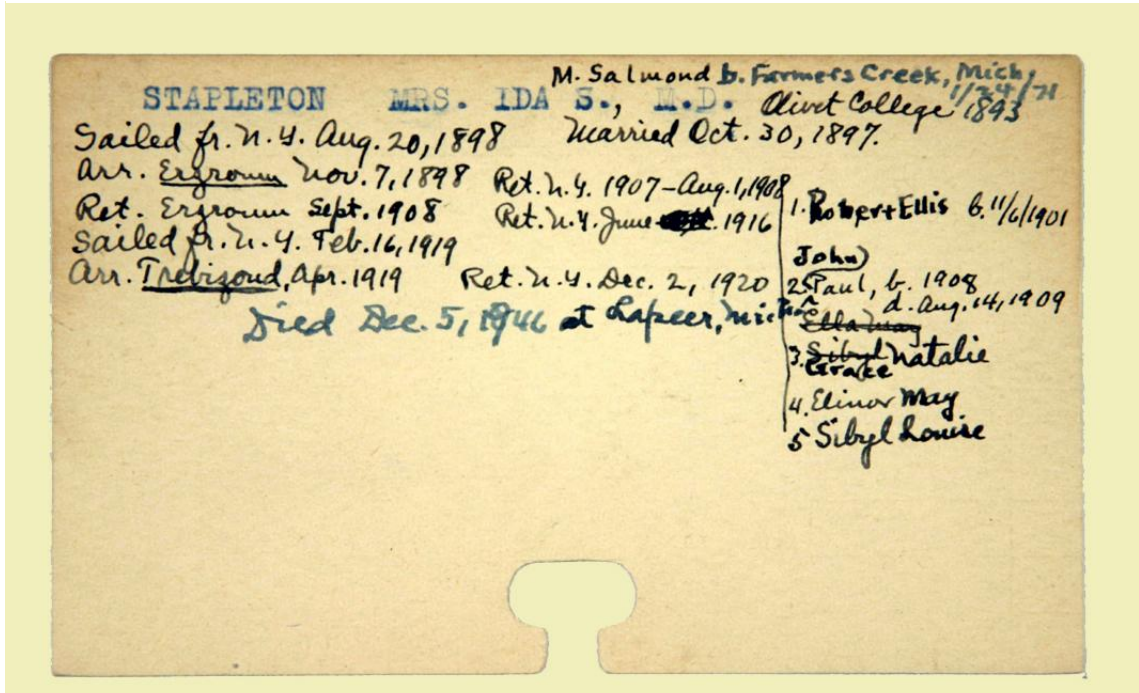 M. Salmond b. Farmers Creek, Mich,
1/24/71
STAPLETON MRS. IDA S., M.D. Olivet College 1893
Sailed fr. N.Y. Aug. 20, 1898 Married Oct. 30, 1897.
Arr. Erzroum Nov. 7, 1898 Ret. N.Y. 1907-Aug. 1, 1908
Ret. Erzroum Sept. 1908 Ret. N.Y. June 1916
Sailed fr. N.Y. Feb. 16, 1919
Arr. Trebizond, Apr. 1919 Ret. N.Y. Dec. 2, 1920
Died Dec. 5, 1946 at Lapeer, Mich
1. Robert Ellis b. 11/6/1901
John)
2. Paul, b. 1908
d. Aug. 14, 1909
Ella May
3. Sibyl Natalie
Grace
4. Elinor May
5 Sibyl Louise